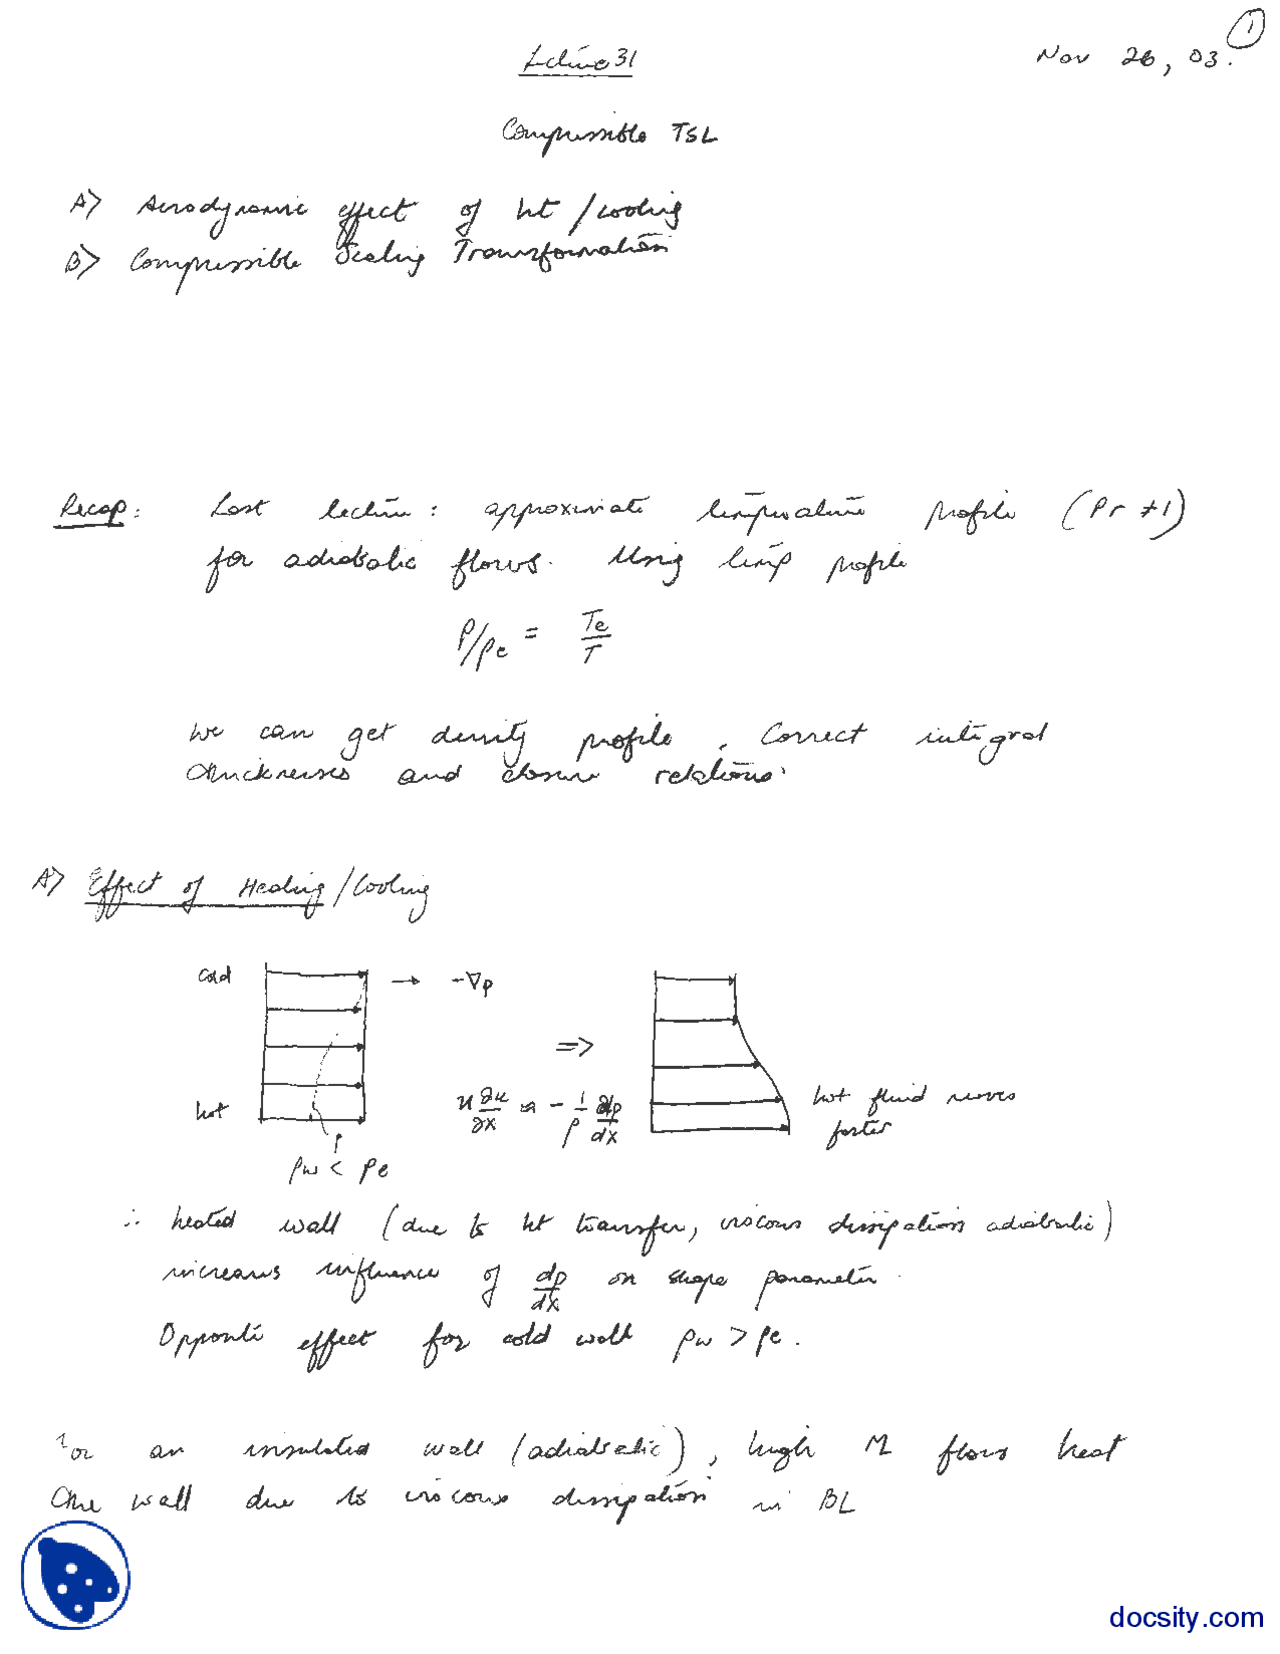 1
Lecture 31
Nov 26, 03.
Compressible TSL
A> Aerodynamic effect of ht/cooling
B> Compressible Scaling Transformation
Recap: Last lecture: approximate temperature profile (Pr ≠ 1)
for adiabatic flows. Using temp profile
ρ/ρe = Te/T
We can get density profile, Correct integral
thicknesses and closure relations.
A> Effect of Heating/Cooling
cold → -∇p
=>
hot u ∂u/∂x ≈ - 1/ρ dp/dx hot fluid moves
faster
ρ
ρw < ρe
∴ heated wall (due to ht transfer, viscous dissipation adiabatic)
increases influence of dp/dx on shape parameter.
Opposite effect for cold wall ρw > ρe.
For an insulated wall (adiabatic), high M flows heat
the wall due to viscous dissipation in BL
docsity.com